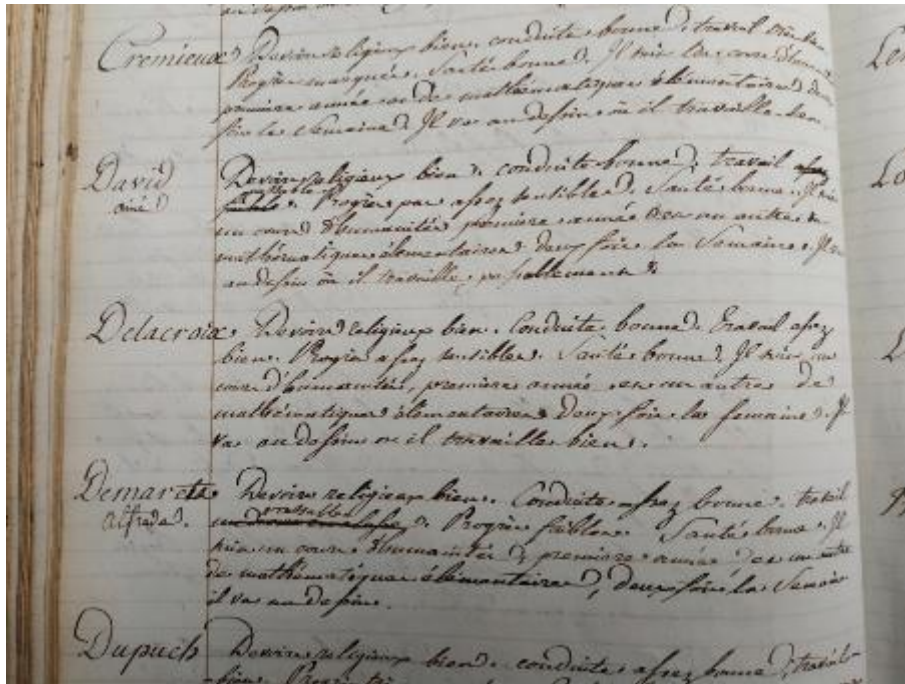 au dessin
Cremieux Devoirs religieux bien. conduite bonne. travail
Progrès marqués. Santé bonne. Il suit un cours d'huma
première année et de mathématiques élémentaires deux
fois la Semaine. Il va au dessin où il travaille bien.
David Devoirs religieux bien. conduite bonne. travail
ainé passable. Progrès pas assez sensibles. Santé bonne. Il suit
un cours d'humanités première année et un autre de
mathématiques élémentaires deux fois la Semaine. Il va
au dessin où il travaille passablement.
Delacroix Devoirs religieux bien. Conduite bonne. Travail assez
bien. Progrès assez sensibles. Santé bonne. Il suit un
cours d'humanités, première année et un autre de
mathématiques élémentaires deux fois la semaine. Il
va au dessin où il travaille bien.
Demarets Devoirs religieux bien. Conduite assez bonne. travail
Alfred. passable. Progrès faibles. Santé bonne. Il
suit un cours d'humanités, première année et un autre
de mathématiques élémentaires, deux fois la Semaine
il va au dessin.
Dupuch Devoirs religieux bien. conduite assez bonne. travail
bien. Progrès